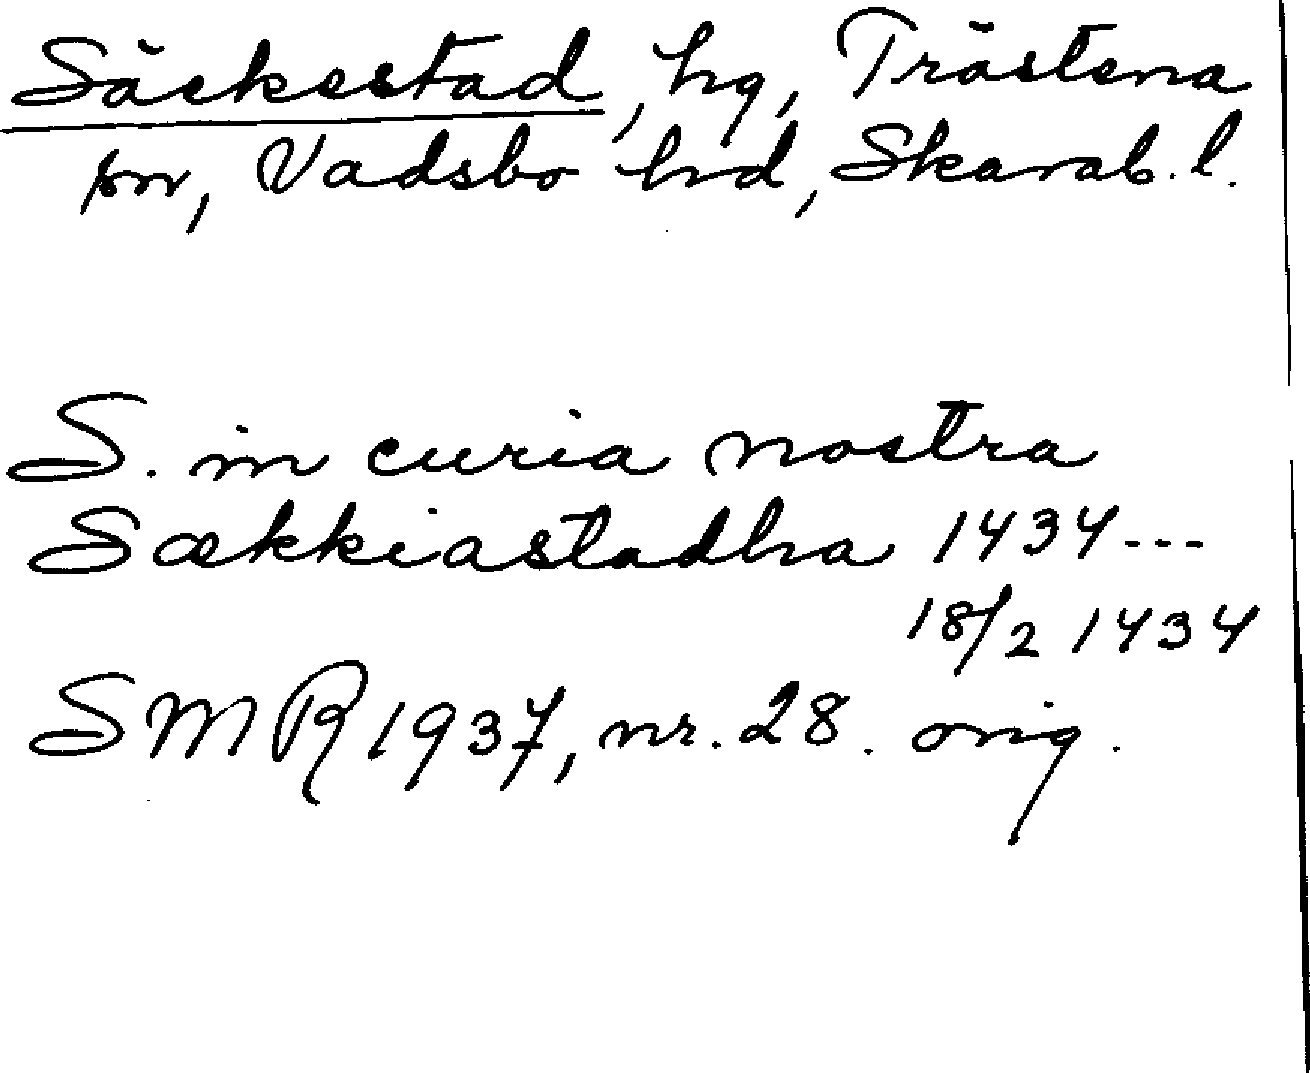 Säckestad, hg, Trästena
sn, Vadsbo hd, Skarab. l.
S. in curia nostra
Sækkiastadha 1434---
18/2 1434
SMR 1937, nr. 28. orig.